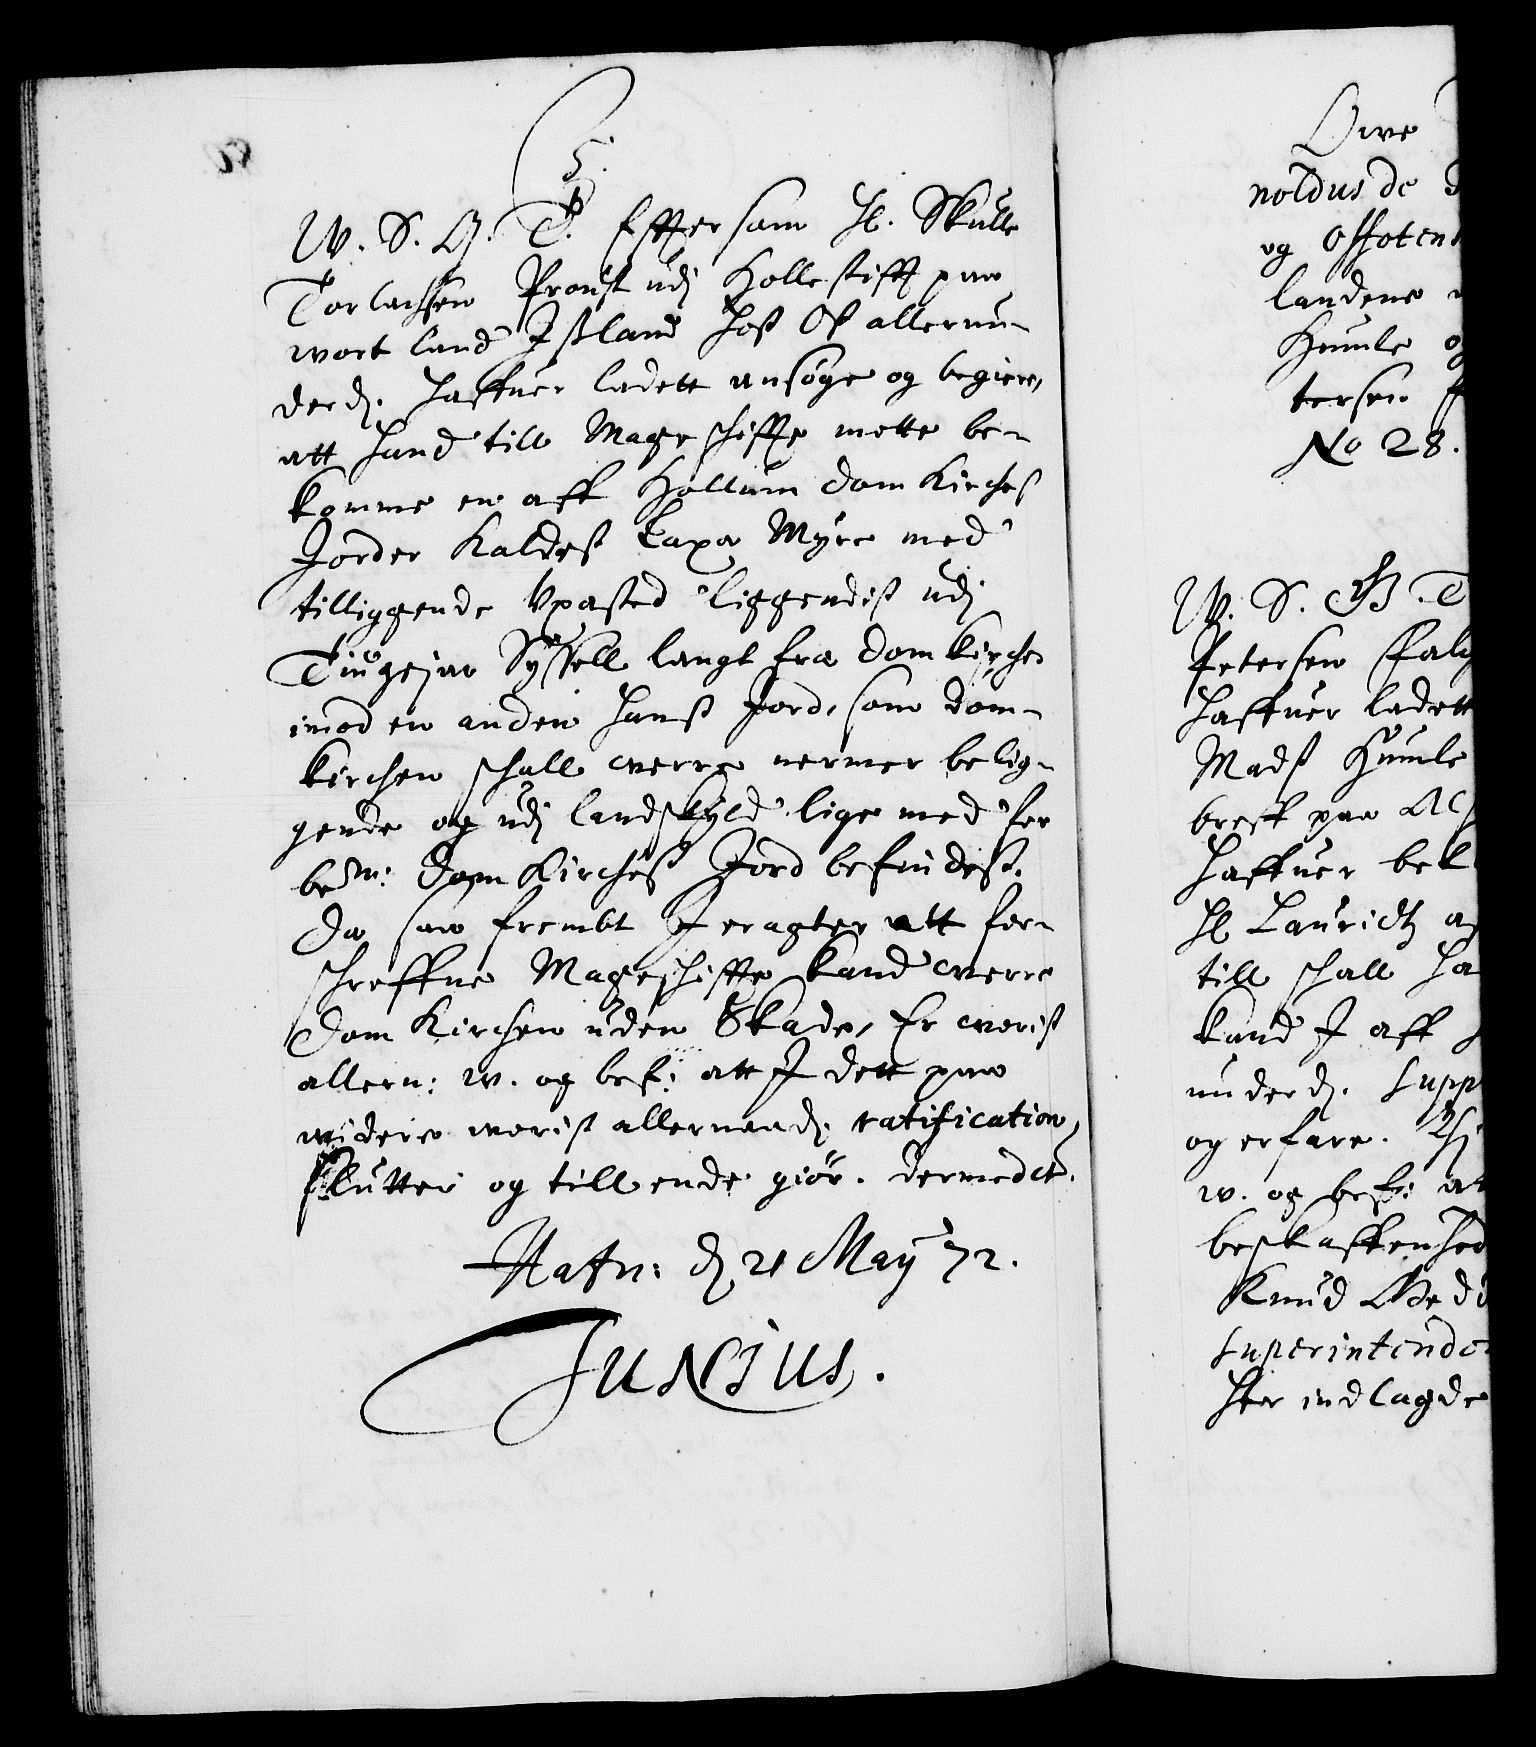 5.
W. S. G. T. Efftersom Hl. Skulle
Torlachsen Proust udj Holle stifft paa
wort land Ißland hoß Oß allerun-
derd. haffuer ladett ansøge og begiere,
att hand till Mageschiffte motte be-
komme en aff Hollum dom Kirches
Jorder Kaldeß Laxa Myre med
tilliggende Vpasted liggendis udj
Tingejar Syssell langt fra dom kirchen
imod en anden hanß Jord, som dom-
kirchen schall werre nermer belig-
gende og udj landskyld lige med for
bem: dom Kircheß Jord befindeß.
Da saa frembt I eragter att for-
schreffne Mageschiffte kand werre
dom Kirchen uden Skade, Er worist
allern: w. og bef: att I dett paa
widere worist allernaad: ratification,
slutter og till ende giør. dermedt.
Hafn: d 21 May 72.
Junius.
Owe
noldus de
og
landene
Humle
tersen
No 28.
W. S. G T
Petersen Falc
haffuer ladett
Madß Humle
breff paa
haffuer bek
Hl Lauridtz
till schall ha
kand I aff
underd. supp
og erfare.
w. og bef: at
beskaffenhed
Knud Gedd
superintende
her indlagde